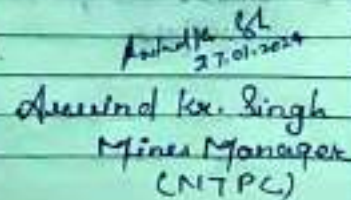 27.01.2024
Arvind Kr. Singh
Mines Manager
(NTPC)